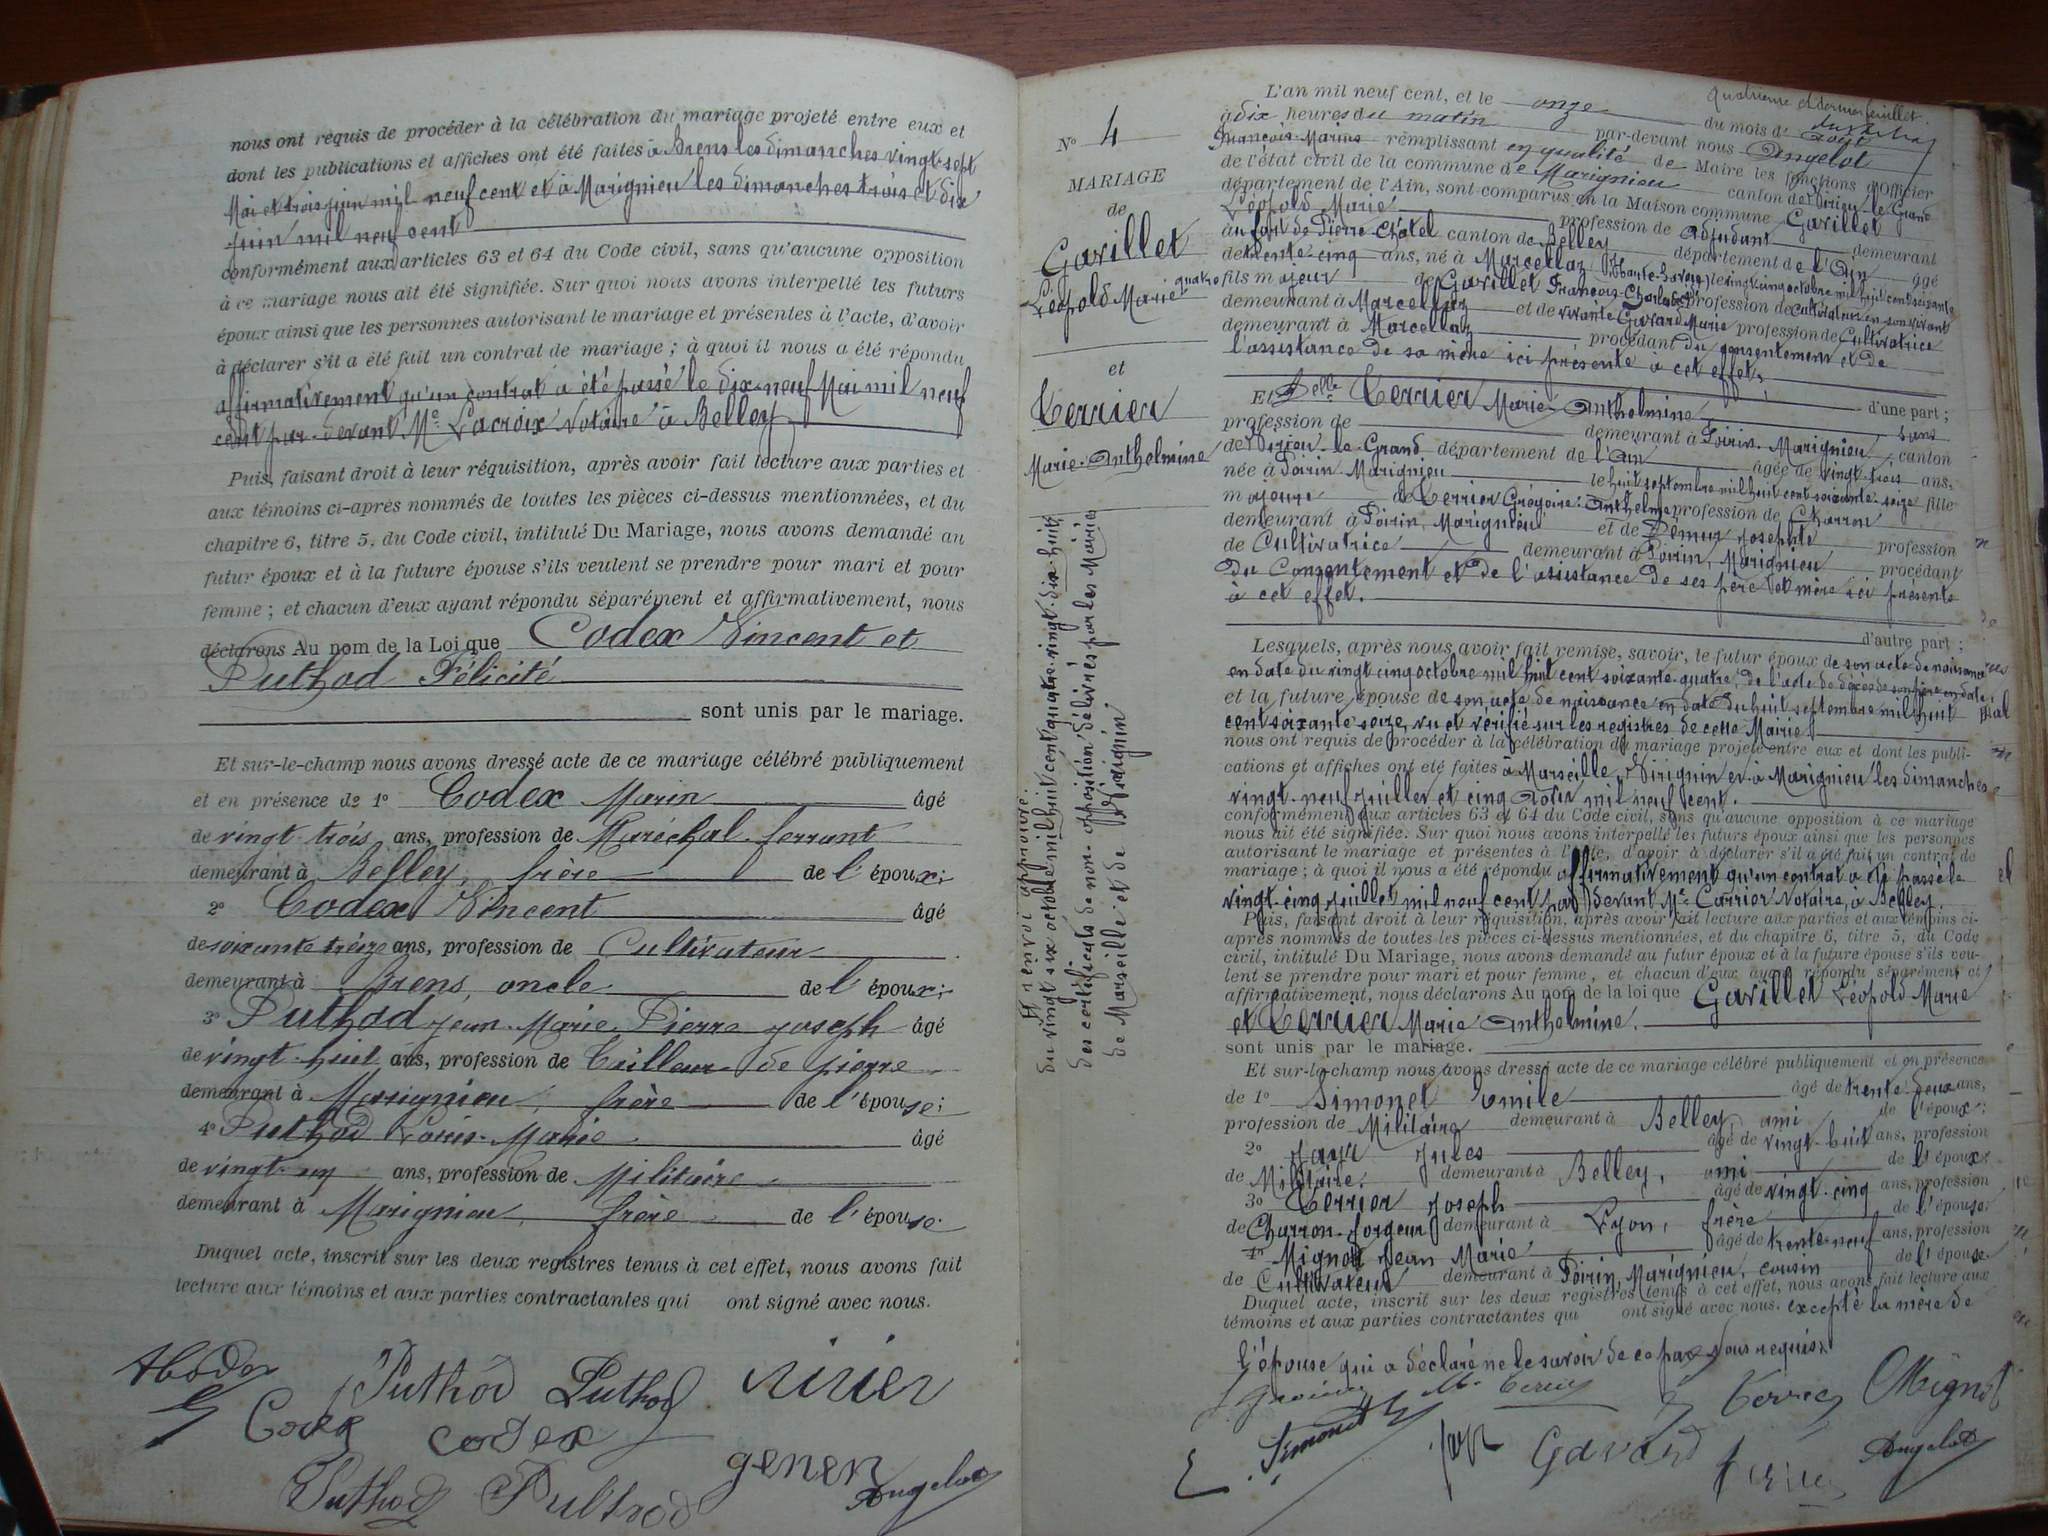 nous ont requis de procéder à la célébration du mariage projeté entre eux et
dont les publications et affiches ont été faites à Brens les dimanches vingt-sept
Mai et trois juin mil neuf cent et à Marignieu les dimanches trois et dix
juin mil neuf cent
conformément aux articles 63 et 64 du Code civil, sans qu'aucune opposition
à ce mariage nous ait été signifiée. Sur quoi nous avons interpellé les futurs
époux ainsi que les personnes autorisant le mariage et présentes à l'acte, d'avoir
à déclarer s'il a été fait un contrat de mariage ; à quoi il nous a été répondu
affirmativement qu'un contrat a été passé le dix-neuf Mai mil neuf
cent par-devant Me Lacroix Notaire à Belley
Puis, faisant droit à leur réquisition, après avoir fait lecture aux parties et
aux témoins ci-après nommés de toutes les pièces ci-dessus mentionnées, et du
chapitre 6, titre 5, du Code civil, intitulé Du Mariage, nous avons demandé au
futur époux et à la future épouse s'ils veulent se prendre pour mari et pour
femme ; et chacun d'eux ayant répondu séparément et affirmativement, nous
déclarons Au nom de la Loi que Codex Vincent et
Puthod Félicité
sont unis par le mariage.
Et sur-le-champ nous avons dressé acte de ce mariage célébré publiquement
et en présence de 1o Codex Marin âgé
de vingt-trois ans, profession de Maréchal-ferrant
demeurant à Belley, frère de l'époux;
2o Codex Vincent âgé
de soixante treize ans, profession de Cultivateur
demeurant à Brens, oncle de l'époux;
3o Puthod Jean-Marie Pierre Joseph âgé
de vingt-huit ans, profession de Tailleur de pierre
demeurant à Marignieu, frère de l'épouse;
4o Puthod Louis-Marie âgé
de vingt-un ans, profession de Militaire
demeurant à Marignieu, frère de l'épouse.
Duquel acte, inscrit sur les deux registres tenus à cet effet, nous avons fait
lecture aux témoins et aux parties contractantes qui ont signé avec nous.
Puthod Puthod
Codex codex
Puthod Puthod genen Angelot
No 4
MARIAGE
de
Gavillet
Léopold Marie
et
Terrier
Marie-Anthelmine
Et renvoi approuvé:
du vingt six octobre mil huit cent quatre-vingt-dix-huit
des certificats de non-opposition délivrés par les Mairies
de Marseille et de Virignin
quatrième et dernier feuillet
L'an mil neuf cent, et le onze du mois d'Août
à dix heures du matin par-devant nous Angelot
François-Marius remplissant en qualité de Maire les fonctions d'Officier
de l'état civil de la commune de Marignieu canton de Virieu-le-Grand
département de l'Ain, sont comparus en la Maison commune Gavillet
Léopold Marie profession de Adjudant demeurant
au fort de Pierre-Châtel canton de Belley département de l'Ain âgé
de trente-cinq ans, né à Marcellaz (Haute-Savoie) le vingt-cinq octobre mil huit cent soixante
quatre fils majeur de Gavillet François-Charles profession de Cultivateur en son vivant
demeurant à Marcellaz et de vivante Gavard Marie profession de Cultivatrice
demeurant à Marcellaz procédant du consentement et de
l'assistance de sa mère ici présente à cet effet,
d'une part ;
Et Delle Terrier Marie-Anthelmine sans
profession de demeurant à Poirin-Marignieu, canton
de Virieu-le-Grand département de l'Ain âgée de vingt-trois ans,
née à Poirin-Marignieu le huit septembre mil huit cent soixante-seize fille
majeure de Terrier Grégoire-Anthelme profession de Charron
demeurant à Poirin, Marignieu et de Demur Josephte profession
de Cultivatrice demeurant à Poirin, Marignieu procédant
du Consentement et de l'assistance de ses père et mère ici présents
à cet effet.
d'autre part ;
Lesquels, après nous avoir fait remise, savoir, le futur époux de son acte de naissance
en date du vingt cinq octobre mil huit cent soixante-quatre, de l'acte de décès de son père en date
et la future épouse de son acte de naissance en date du huit septembre mil huit
cent soixante seize, vu et vérifié sur les registres de cette Mairie
nous ont requis de procéder à la célébration du mariage projeté entre eux et dont les publi-
cations et affiches ont été faites à Marseille, Virignin et à Marignieu les dimanches
vingt-neuf juillet et cinq Août mil neuf cent.
conformément aux articles 63 et 64 du Code civil, sans qu'aucune opposition à ce mariage
nous ait été signifiée. Sur quoi nous avons interpellé les futurs époux ainsi que les personnes
autorisant le mariage et présentes à l'acte, d'avoir à déclarer s'il a été fait un contrat de
mariage ; à quoi il nous a été répondu affirmativement qu'un contrat a été passé le
vingt-cinq juillet mil neuf cent par devant Me Carrier Notaire, à Belley.
Puis, faisant droit à leur réquisition, après avoir fait lecture aux parties et aux témoins ci-
après nommés de toutes les pièces ci-dessus mentionnées, et du chapitre 6, titre 5, du Code
civil, intitulé Du Mariage, nous avons demandé au futur époux et à la future épouse s'ils veu-
lent se prendre pour mari et pour femme, et chacun d'eux ayant répondu séparément et
affirmativement, nous déclarons Au nom de la loi que Gavillet Léopold Marie
et Terrier Marie Anthelmine.
sont unis par le mariage.
Et sur-le-champ nous avons dressé acte de ce mariage célébré publiquement et en présence
de 1o Simonet Emile âgé de trente-deux ans,
profession de Militaire demeurant à Belley, ami de l'époux;
2o Jayr Jules âgé de vingt-huit ans, profession
de Militaire, demeurant à Belley, ami de l'époux;
3o Terrier Joseph âgé de vingt-cinq ans, profession
de Charron-forgeur demeurant à Lyon, frère de l'épouse;
4o Mignot Jean Marie âgé de trente-neuf ans, profession
de Cultivateur demeurant à Poirin, Marignieu, cousin de l'épouse.
Duquel acte, inscrit sur les deux registres tenus à cet effet, nous avons fait lecture aux
témoins et aux parties contractantes qui ont signé avec nous. excepté la mère de
l'épouse qui a déclaré ne le savoir de ce par Nous requise.
Mignot
E. Simonet Gavard Angelot